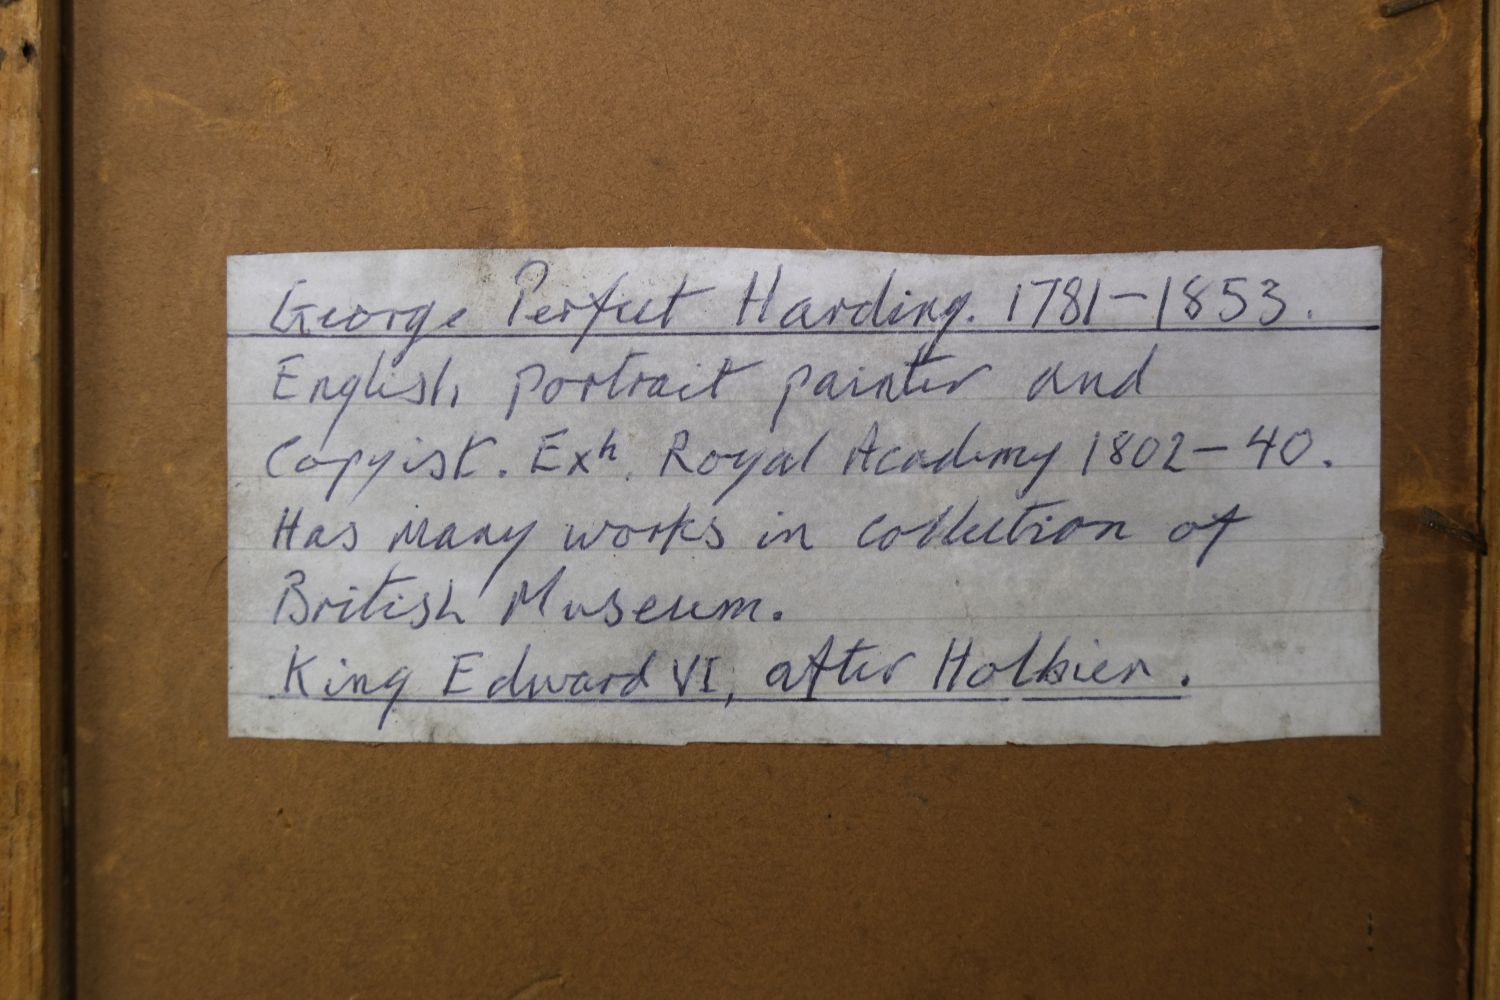 George Perfect Harding. 1781-1853.
English portrait painter and
Copyist. Exh. Royal Academy 1802-40.
Has many works in collection of
British Museum.
King Edward VI, after Holbien.